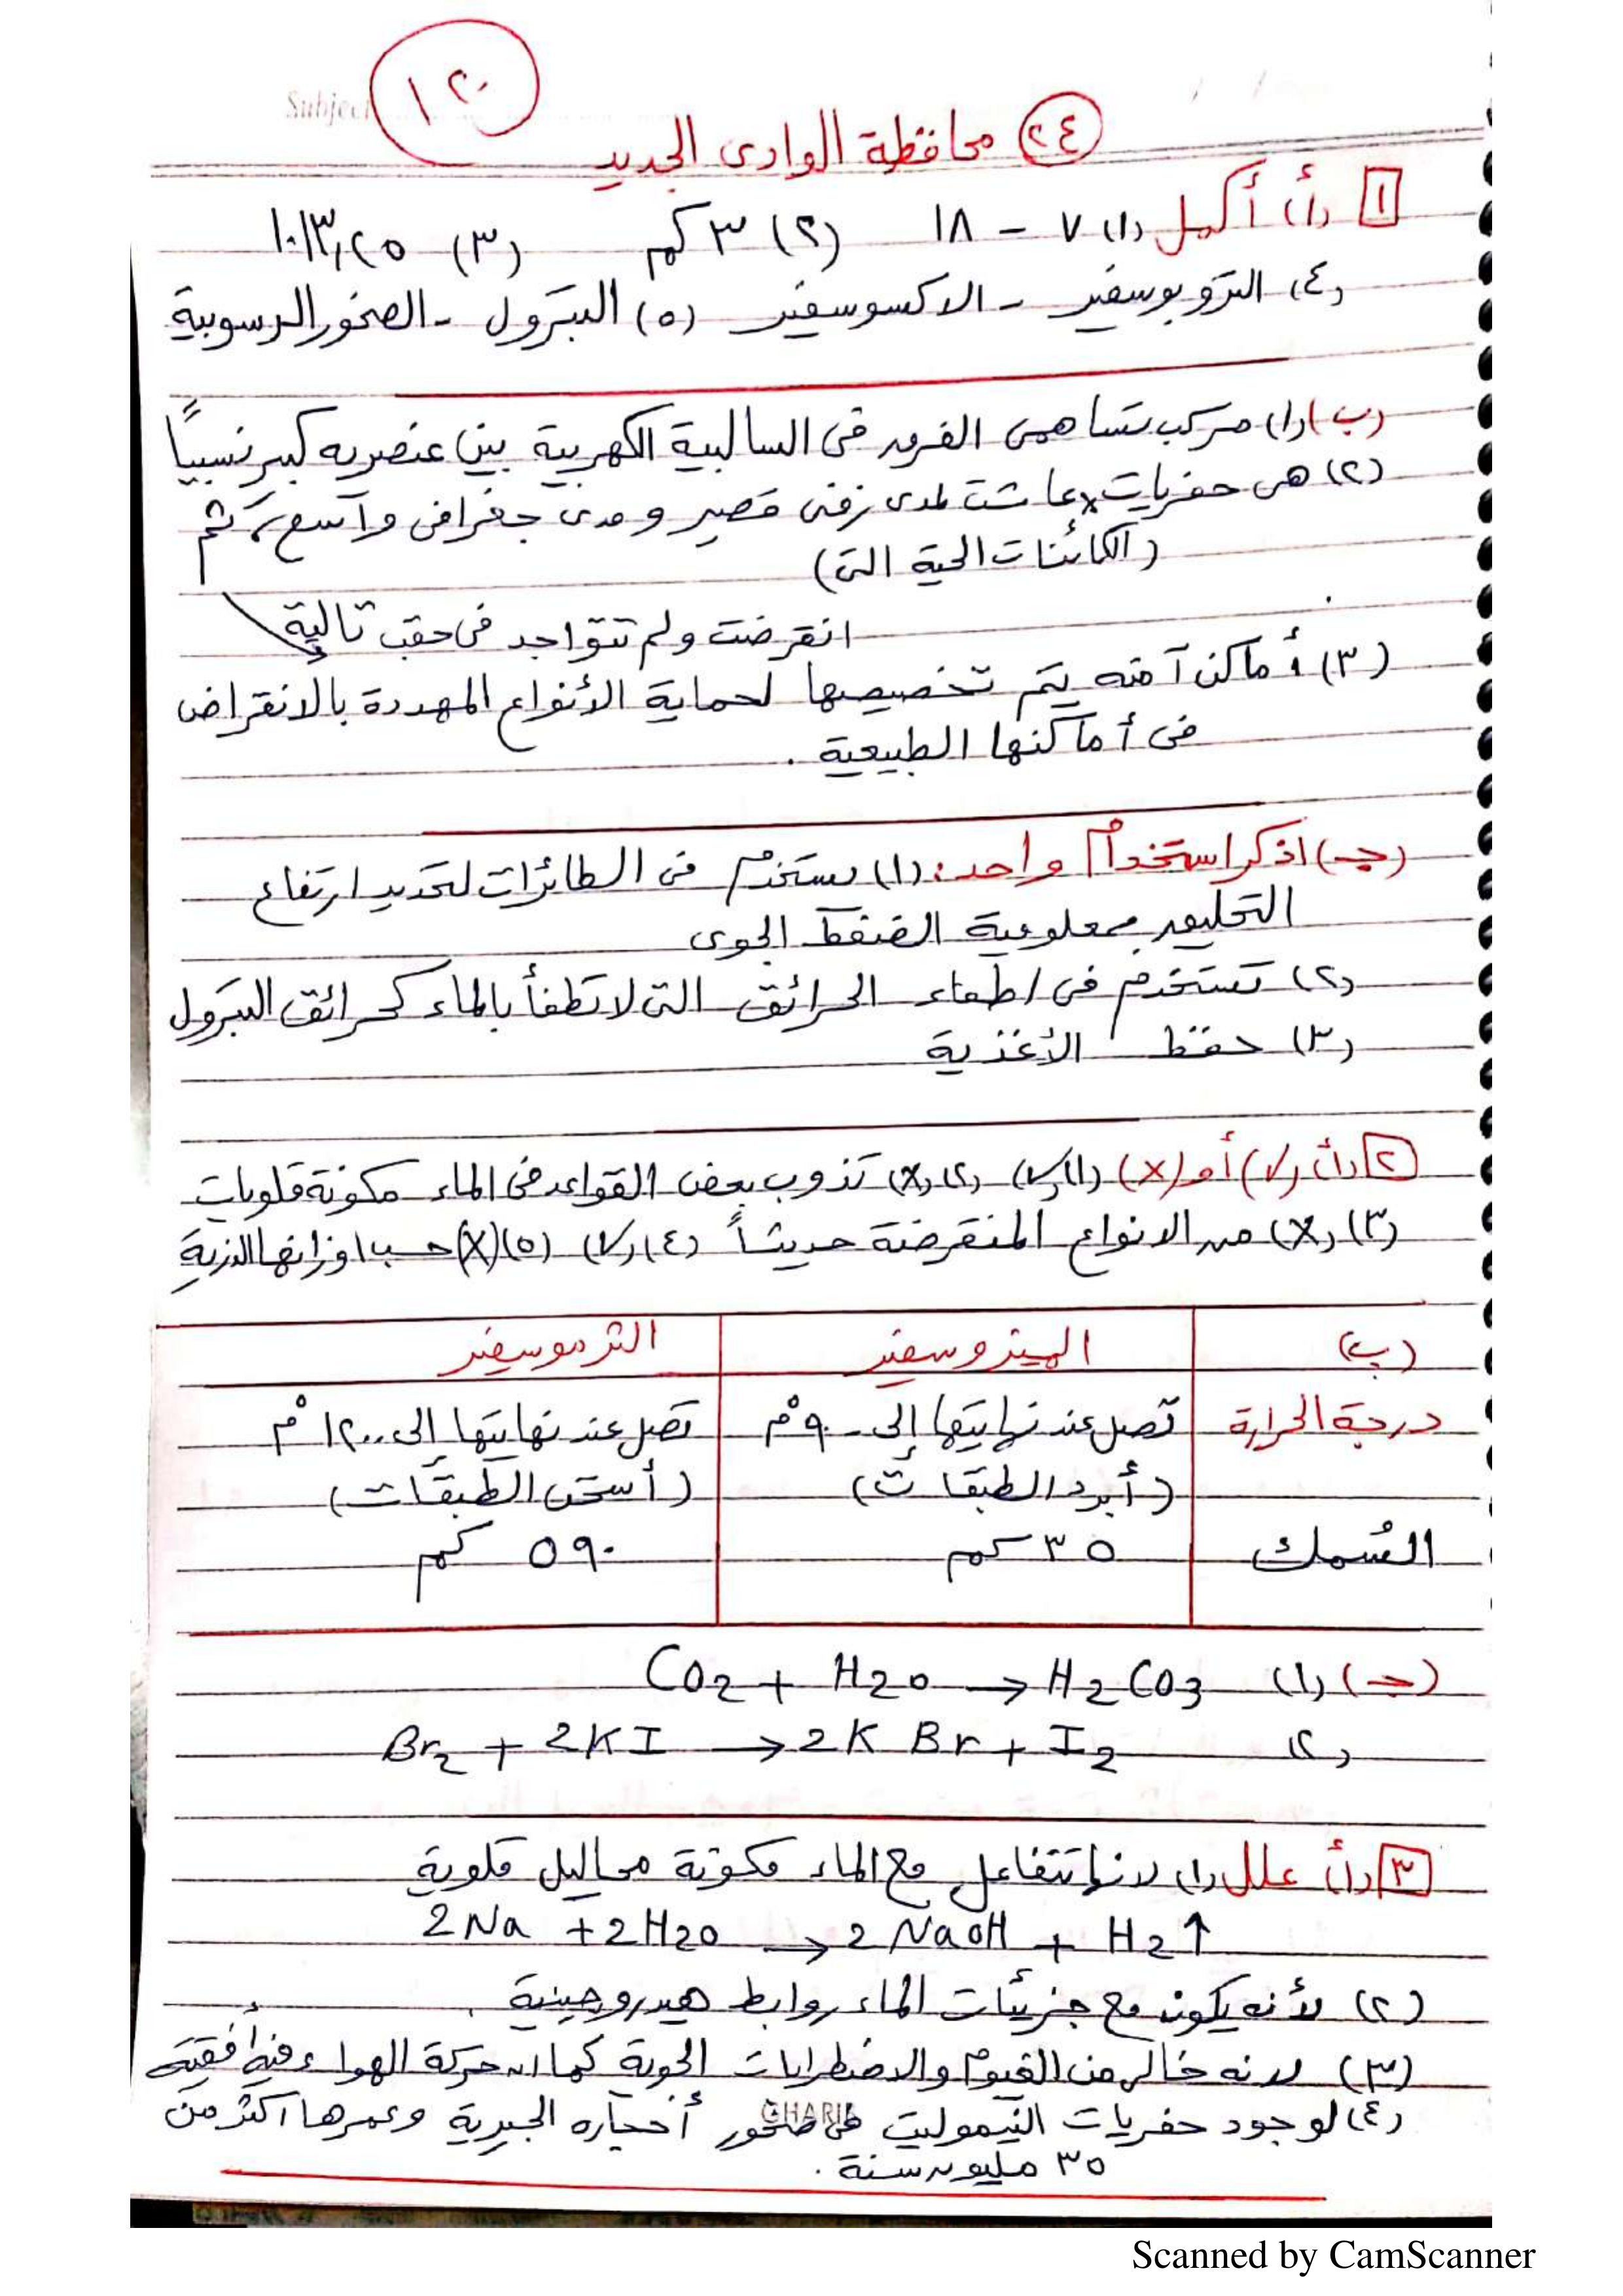 Subject
١٢٠
(٢٤) محافظة الوادى الجديد
١ (أ) أكمل (١) ٧ - ١٨ (٢) ٣ كم (٣) ١٠١٣,٢٥
(٤) التروبوسفير - الاكسوسفير (٥) البترول - الصخور الرسوبية
(ب) (١) مركب تساهمى الفرق فى السالبية الكهربية بين عنصريه كبير نسبياً
(٢) هى حفريات x عاشت لمدى زمنى قصير ومدى جغرافى واسع، ثم
(الكائنات الحية التى)
انقرضت ولم تتواجد فى حقب تالية
(٣) أماكن آمنه يتم تخصيصها لحماية الأنواع المهددة بالانقراض
فى أماكنها الطبيعية .
(جـ) اذكر استخدام واحد: (١) يستخدم فى الطائرات لتحديد ارتفاع
التحليق بمعلومية الضغط الجوى
(٢) تستخدم فى اطفاء الحرائق التى لا تطفأ بالماء كحرائق البترول
(٣) حفظ الأغذية
٢ (أ) (√) أو (X) (١) (√) (٢) (X) تذوب بعض القواعد فى الماء مكونة قلويات
(٣) (X) من الانواع المنقرضة حديثاً (٤) (√) (٥) (X) حسب اوزانها الذرية
(ب) الميزوسفير الثرموسفير
درجة الحرارة تصل عند نهايتها إلى -٩٠°م تصل عند نهايتها إلى ١٢٠٠°م
(أبرد الطبقات) (أسخن الطبقات)
السُمك ٣٥ كم ٥٩٠ كم
(جـ) (١) CO2 + H2O → H2CO3
(٢) Br2 + 2KI → 2KBr + I2
٣ (أ) علل (١) لانها تتفاعل مع الماء مكونة محاليل قلوية
2Na + 2H2O → 2NaOH + H2↑
(٢) لأنه يكون مع جزيئات الماء روابط هيدروجينية .
(٣) لانه خالى من الغيوم والاضطرابات الجوية كما ان حركة الهواء فيه أفقية
(٤) لوجود حفريات النيموليت فى صخور أحجاره الجيرية وعمرها اكثر من
٣٥ مليون سنة .
Scanned by CamScanner